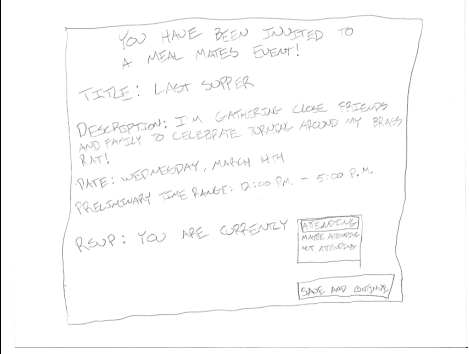 YOU HAVE BEEN INVITED TO
A MEAL MATES EVENT!
TITLE: LAST SUPPER
DESCRIPTION: I'M GATHERING CLOSE FRIENDS
AND FAMILY TO CELEBRATE TURNING AROUND MY BRASS
RAT!
DATE: WEDNESDAY, MARCH 4TH
PRELIMINARY TIME RANGE: 12:00 P.M. - 5:00 P.M.
RSVP: YOU ARE CURRENTLY
ATTENDING
MAYBE ATTENDING
NOT ATTENDING
SAVE AND CONTINUE